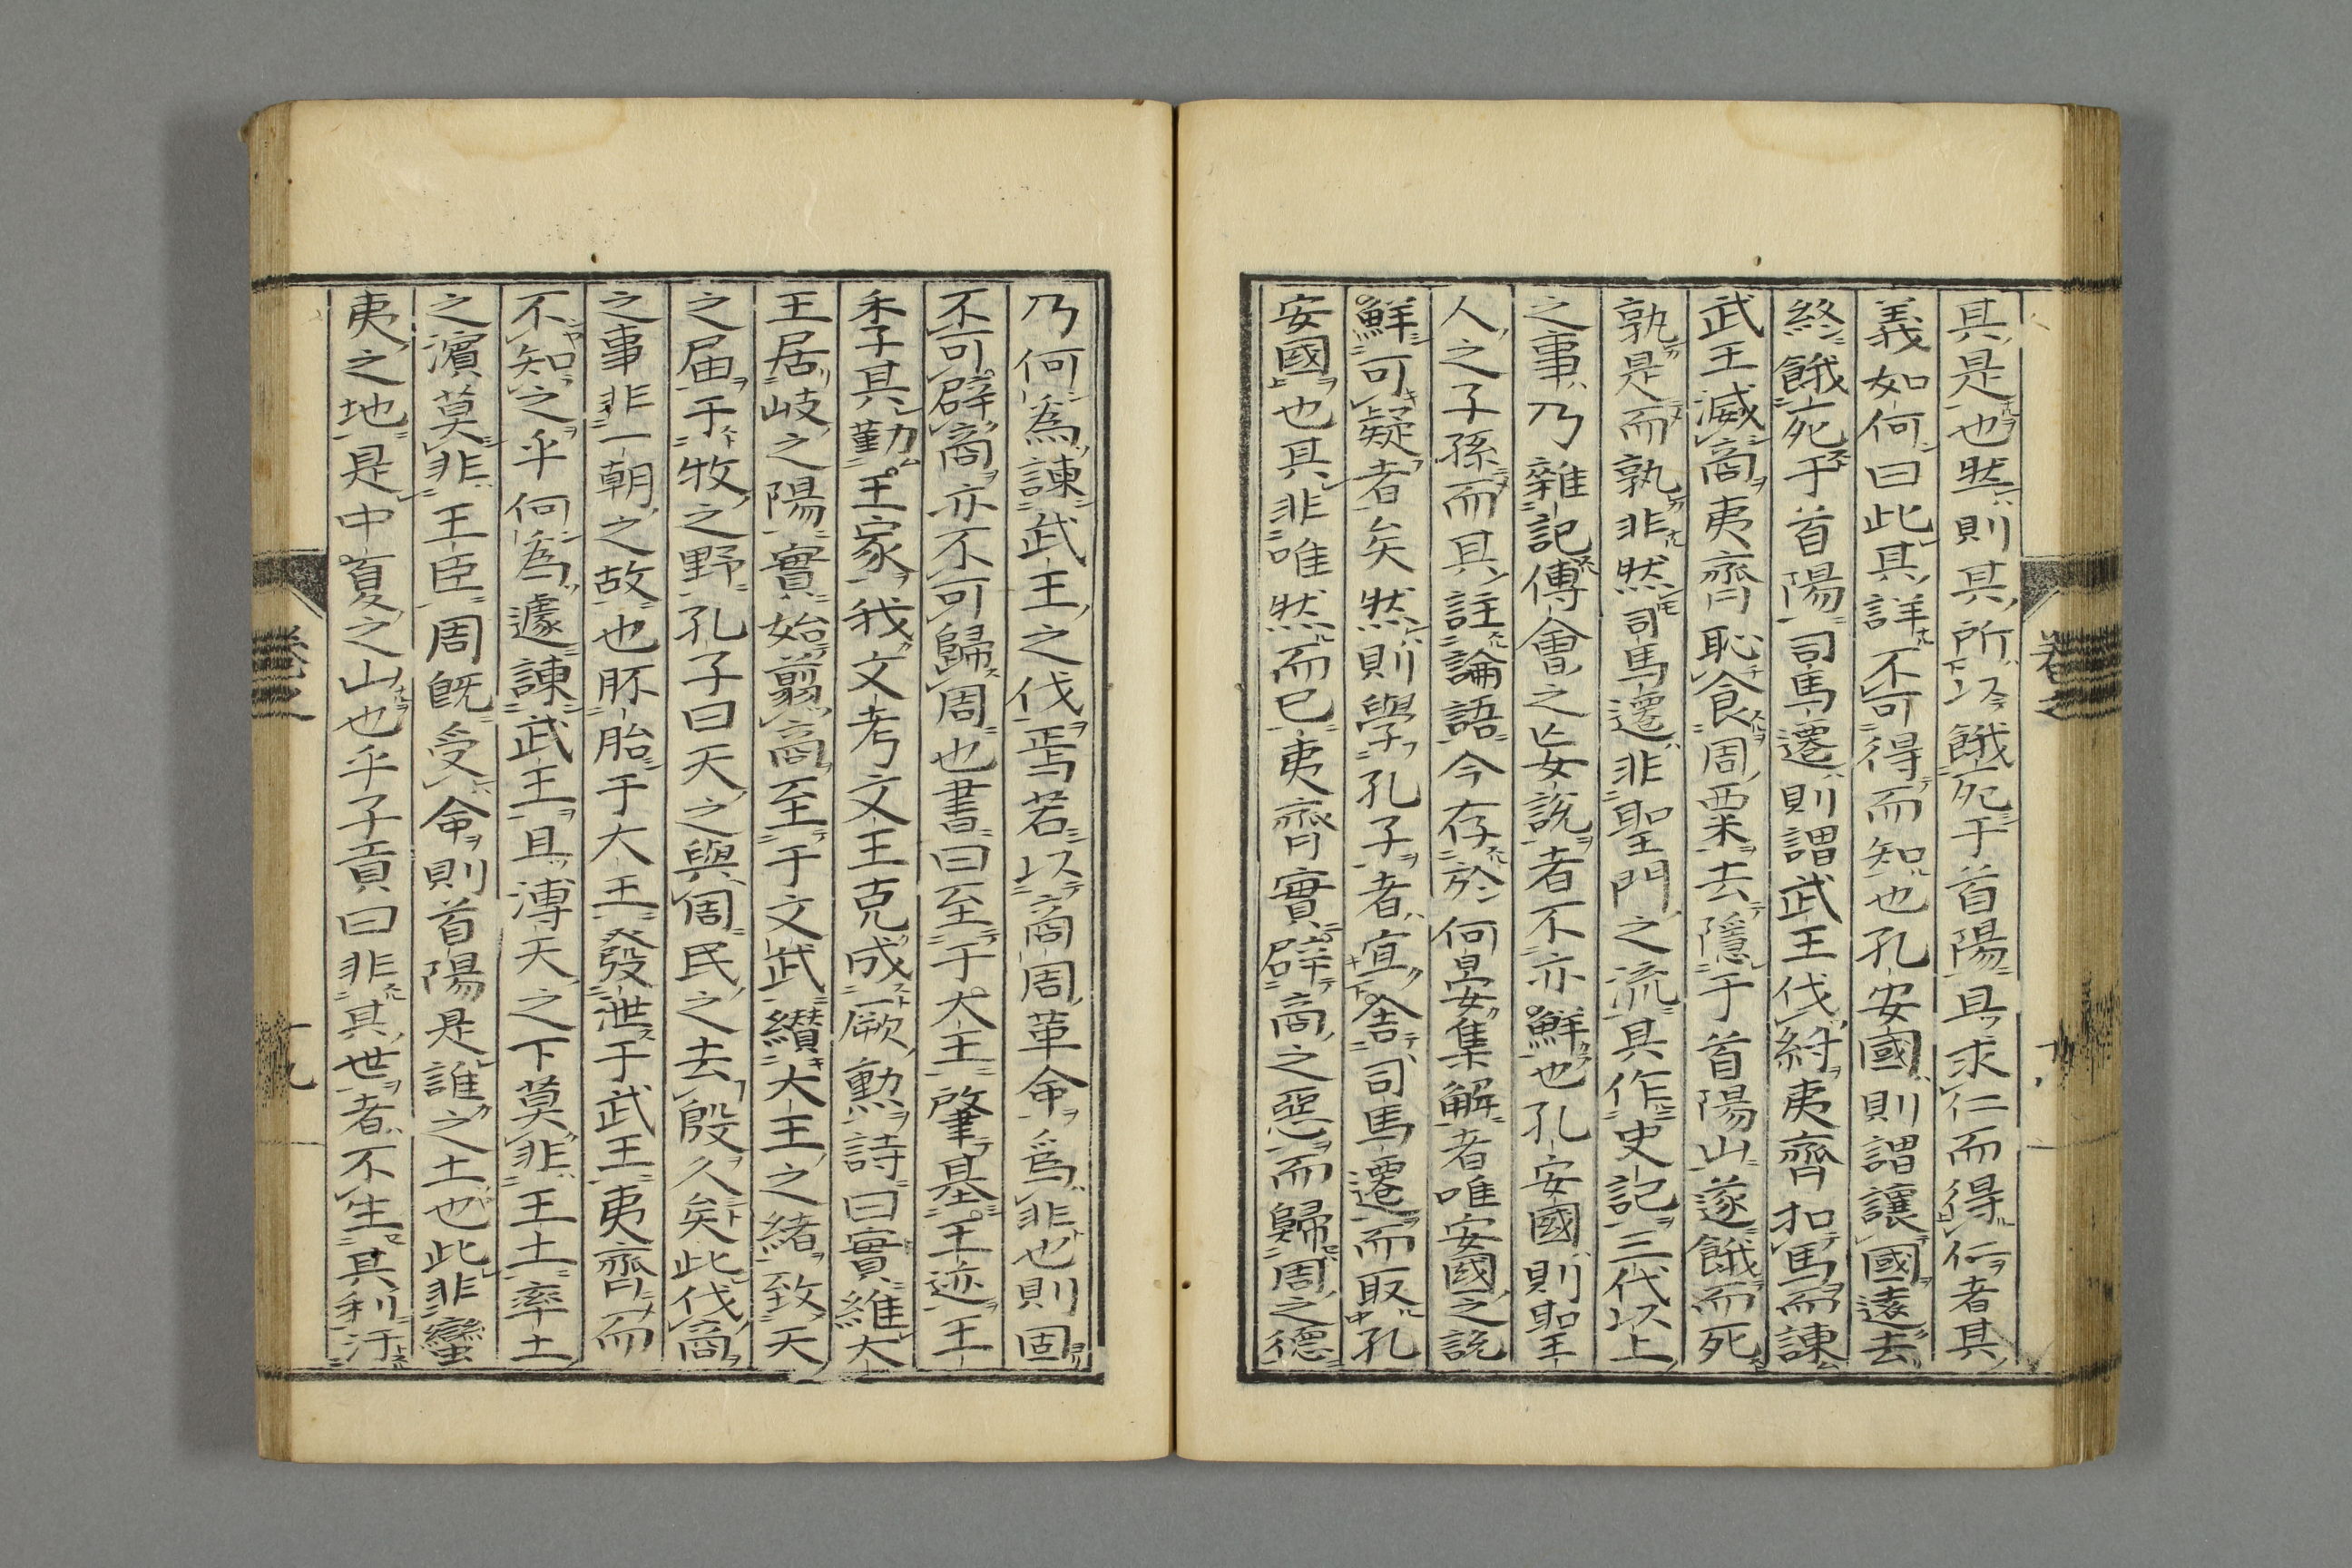 其是也然則其所以餓死于首陽且求仁而得仁者其
義如何曰此其詳不可得而知也孔安國則謂讓國遠去
終餓死于首陽司馬遷則謂武王伐紂夷齊扣馬而諫
武王滅商夷齊恥食周粟去隱于首陽山遂餓而死
孰是而孰非然司馬遷非聖門之流其作史記三代以上
之事乃雜記傅會之妄說者不亦鮮也孔安國則聖
人之子孫而其註論語今存於何晏集解者唯安國之說
鮮可疑者矣然則學孔子者宜舍司馬遷而取孔
安國也其非唯然而已夷齊實辟商之惡而歸周之德
乃何爲諫武王之伐焉若以商周革命爲非也則固
不可辟商亦不可歸周也書曰至于大王肇基王迹王
季其勤王家我文考文王克成厥勳詩曰實維大
王居岐之陽實始翦商至于文武纘大王之緒致天
之届于牧之野孔子曰天之與周民之去殷久矣此伐商
之事非一朝之故也胚胎于大王發泄于武王夷齊而
不知之乎何爲遽諫武王且溥天之下莫非王土率土
之濱莫非王臣周既受命則首陽是誰之土也此非蠻
夷之地是中夏之山也乎子貢曰非其世者不生其利汙
卷之一
十九